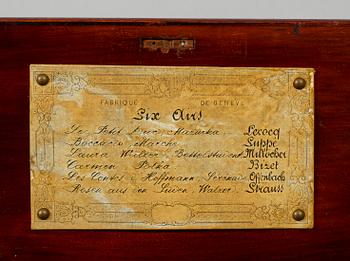 FABRIQUE DE GENÈVE
Six Airs
Le Petit Duc, Mazurka. Lecocq
Boccaccio Marche. Suppe
Laura Walzer, Bettelstudent Millöcker
Carmen Polka Bizet
Les Contes d'Hoffmann, Offenbach
Rosen aus den Süden, Walzer. Strauss